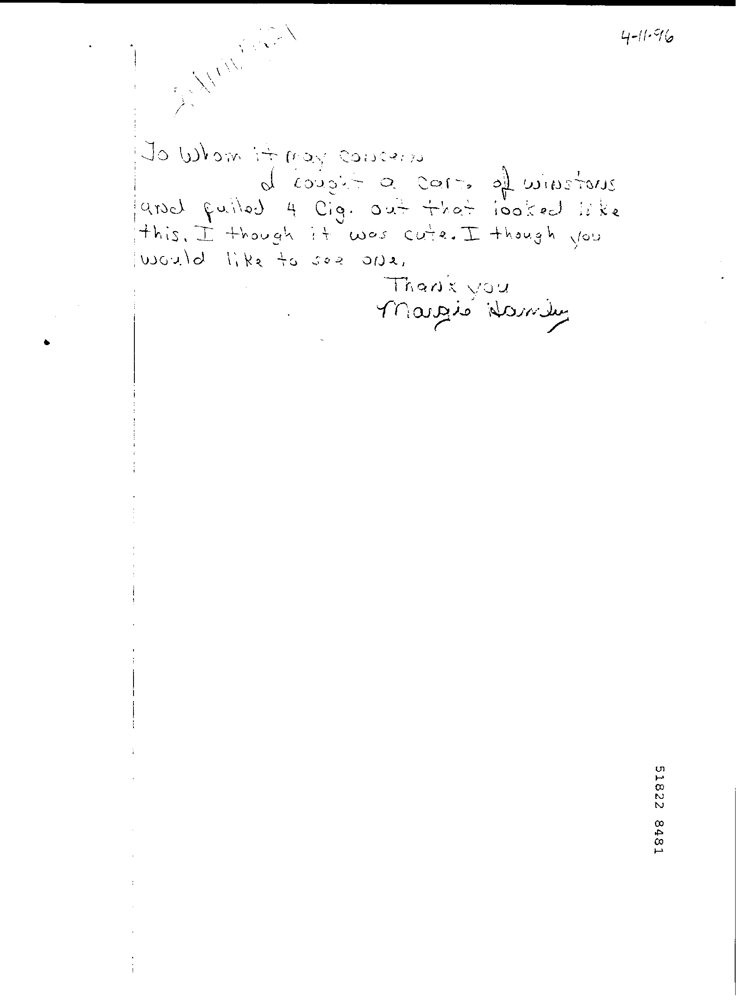 4-11-96
To Whom it may concern
I bought a cart. of winstons
and pulled 4 Cig. out that looked like
this. I though it was cute. I though you
would like to see one.
Thank you
Margie
51822 8481